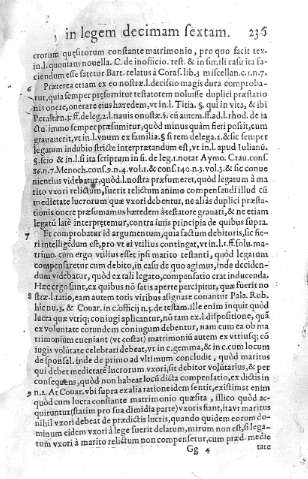 in legem decimam sextam. 236
crorum quęsitorum constante matrimonio, pro quo facit tex.
in l. quoniam nouella. C. de inofficio. test. & in simili casu ita fa-
ciendum esse fatetur Bart. relatus à Cons. lib. 3 miscellan. c. 1. n. 7.
6 Præterea etiam ex eo nostræ l. decisio magis dura comproba-
tur, quia semper præsumitur testatorem noluisse duplici præsta-
tionis onere, onerare eius hæredem, vt in l. Titia. §. qui in vita, & ibi
immo semper præsumitur, quòd minus quàm fieri possit, eum
grauauerit, vt in l. vnum ex familia §. si rem
legatum indubio strictè interpretandum est, vt in l. apud Iulianū.
§. scio & in l. si ita scriptum in ff. de leg. 1. notat Aymo. Crau. cons.
nientius videbatur, quòd l. nostra præsumeret, quod legatum à ma
rito vxori relictum, fuerit relictum animo compensandi illud cū
medietate lucrorum quæ vxori debentur, ne alias duplici præsta-
tionis onere præsumamus hæredem à testatore grauari, & ne etiam
legatū latè interpretemur, contra iuris principia de quibus supra.
7 Et comprobatur id argumentum, quia factum debitoris, sic fie-
ri intelligēdum est, pro vt ei vtilius contingat, vt in l. 1. ff. solu. ma-
trimo. cum ergo vtilius esset ipsi marito testanti, quòd legatum
compēsaretur cum debito, in casu de quo agimus, inde deciden-
dum videbatur, quòd ex tali legato, compensatio erat inducenda.
8 Hęc ergo sunt, ex quibus nō satis aperte percipitur, quæ fuerit no
stræ l. ratio, eam autem toris viribus assignare conantur Pala. Rub.
hic nu. 5. & Couar. in c. officij n. 5. de testam. ille enim inquit quòd
lucra quæ vtriq; coniugi applicantur, nō tam ex l. dispositione, quā
ex voluntate eorumdem coniugum debentur, nam cum ea ob ma
trimonium eueniant (vt costat) matrimoniū autem ex vtriusq; cō
iugis voluntate celebrari debeat, vt in c. gemma, & in c. cum locum
de sponsal. inde de primo ad vltimum concludit, quòd maritus
qui debet medietatē lucrorum vxori, sit debitor volūtarius, & per
consequens, quòd non habeat locū dicta compensatio, ex dictis in
n. 2. At Couar. vbi supra ex alia ratione idem sentit, existimat enim
quòd cum lucra constante matrimonio quæsita, illico quòd ac-
quiruntur (statim pro sua dimidia parte) vxoris fiant, haut maritus
nihil vxori debeat de prædictis lucris, quando quidem eorum do-
minium eidem vxori à lege fuerit delatum, mirum non est, si lega-
tum vxori à marito relictum non compensetur, cum præd. medie
Gg 4 tate